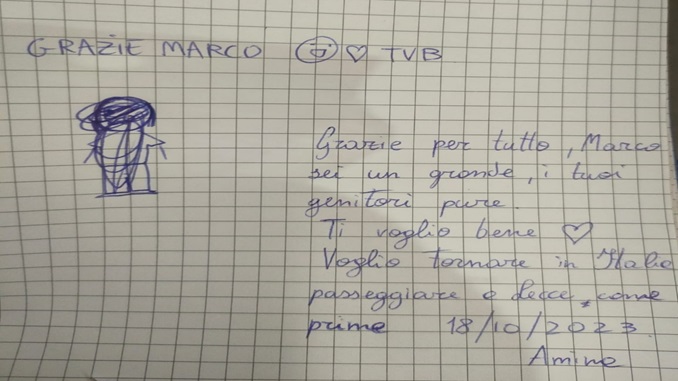 GRAZIE MARCO ♡ TVB
Grazie per tutto, Marco
sei un grande, i tuoi
genitori pure.
Ti voglio bene ♡
Voglio tornare in Italia
passeggiare a Lecce, come
prima 18/10/2023
Amine